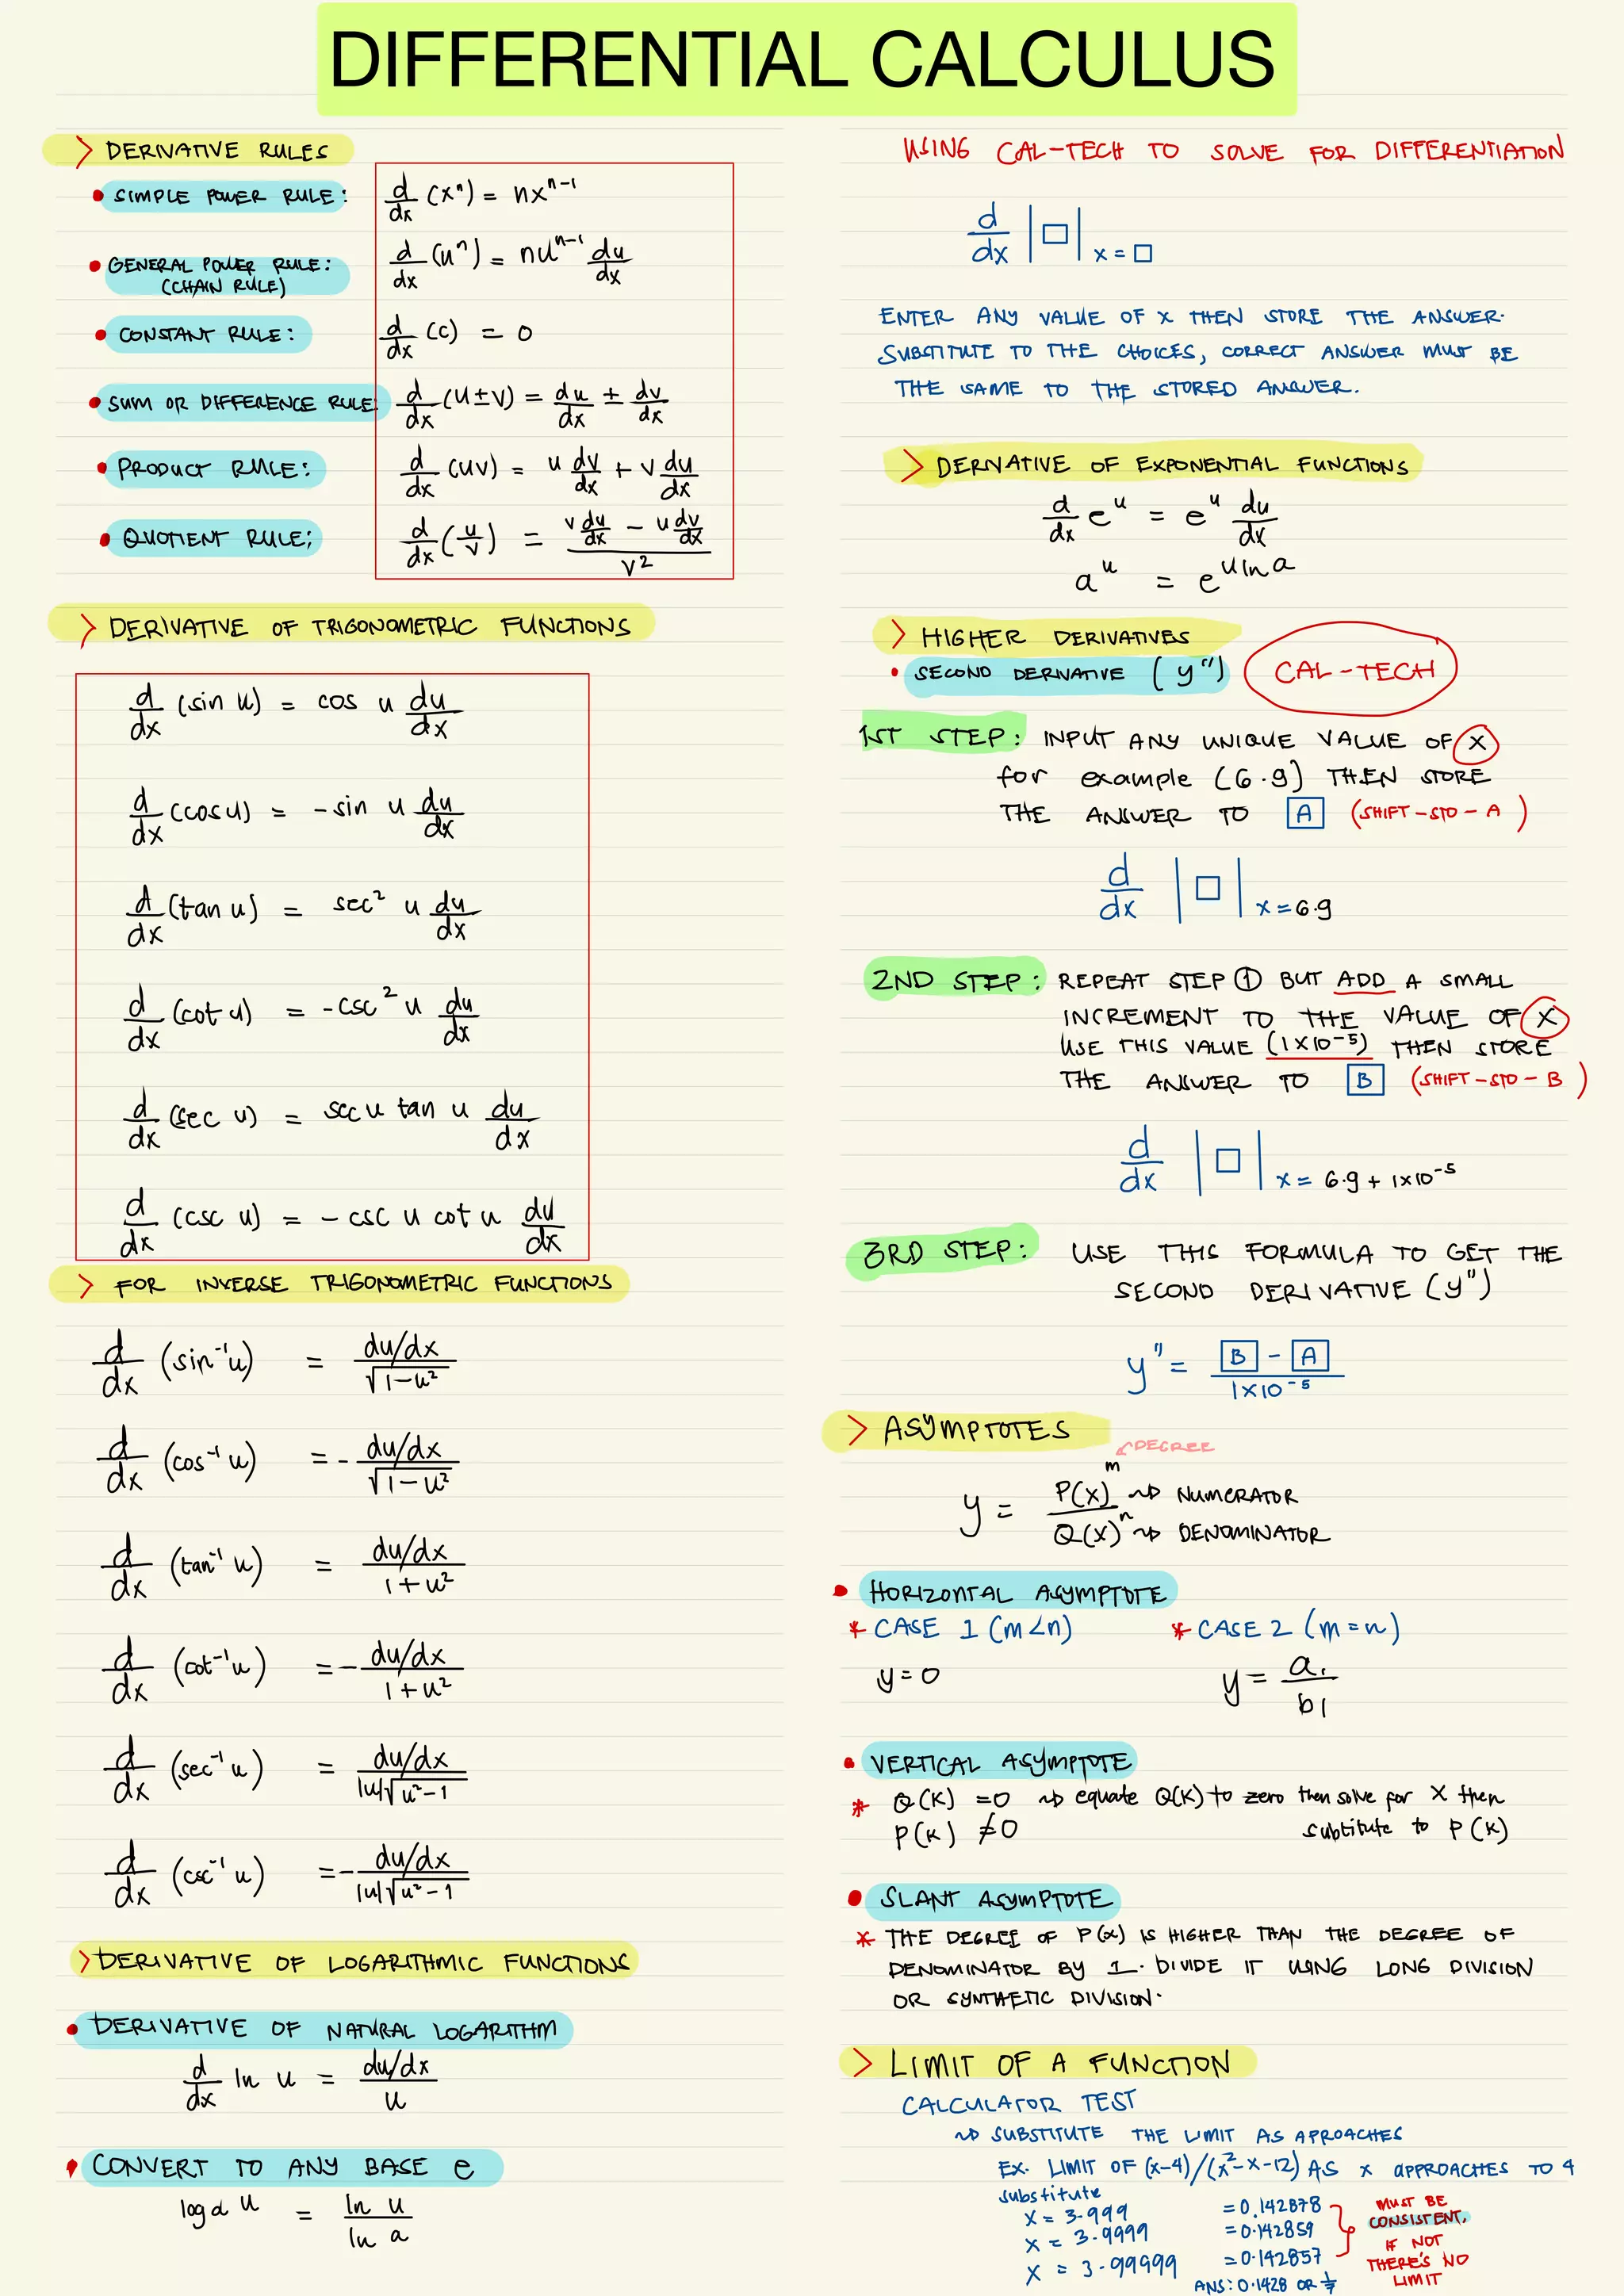 DIFFERENTIAL CALCULUS
> DERIVATIVE RULES
• SIMPLE POWER RULE: d/dx (xⁿ) = nxⁿ⁻¹
• GENERAL POWER RULE: (CHAIN RULE) d/dx (uⁿ) = nuⁿ⁻¹ du/dx
• CONSTANT RULE: d/dx (c) = 0
• SUM OR DIFFERENCE RULE: d/dx (u ± v) = du/dx ± dv/dx
• PRODUCT RULE: d/dx (uv) = u dv/dx + v du/dx
• QUOTIENT RULE: d/dx (u/v) = (v du/dx - u dv/dx) / v²
> DERIVATIVE OF TRIGONOMETRIC FUNCTIONS
d/dx (sin u) = cos u du/dx
d/dx (cos u) = - sin u du/dx
d/dx (tan u) = sec² u du/dx
d/dx (cot u) = - csc² u du/dx
d/dx (sec u) = sec u tan u du/dx
d/dx (csc u) = - csc u cot u du/dx
> FOR INVERSE TRIGONOMETRIC FUNCTIONS
d/dx (sin⁻¹ u) = du/dx / √(1-u²)
d/dx (cos⁻¹ u) = - du/dx / √(1-u²)
d/dx (tan⁻¹ u) = du/dx / 1+u²
d/dx (cot⁻¹ u) = - du/dx / 1+u²
d/dx (sec⁻¹ u) = du/dx / |u|√(u²-1)
d/dx (csc⁻¹ u) = - du/dx / |u|√(u²-1)
> DERIVATIVE OF LOGARITHMIC FUNCTIONS
• DERIVATIVE OF NATURAL LOGARITHM
d/dx ln u = du/dx / u
• CONVERT TO ANY BASE e
log a u = ln u / ln a
USING CAL-TECH TO SOLVE FOR DIFFERENTIATION
d/dx |□| x = □
ENTER ANY VALUE OF X THEN STORE THE ANSWER.
SUBSTITUTE TO THE CHOICES, CORRECT ANSWER MUST BE
THE SAME TO THE STORED ANSWER.
> DERIVATIVE OF EXPONENTIAL FUNCTIONS
d/dx eᵘ = eᵘ du/dx
aᵘ = e^(u ln a)
> HIGHER DERIVATIVES
• SECOND DERIVATIVE (y") CAL-TECH
1ST STEP: INPUT ANY UNIQUE VALUE OF X
for example (6.9) THEN STORE
THE ANSWER TO A (SHIFT-STO-A)
d/dx |□| x = 6.9
2ND STEP: REPEAT STEP ① BUT ADD A SMALL
INCREMENT TO THE VALUE OF X
USE THIS VALUE (1X10-5) THEN STORE
THE ANSWER TO B (SHIFT-STO-B)
d/dx |□| x = 6.9 + 1x10⁻⁵
3RD STEP: USE THIS FORMULA TO GET THE
SECOND DERIVATIVE (y")
y" = B - A / 1X10⁻⁵
> ASYMPTOTES
DEGREE
y = P(x)ᵐ / Q(x)ⁿ
NUMERATOR
DENOMINATOR
• HORIZONTAL ASYMPTOTE
* CASE 1 (m<n) * CASE 2 (m=n)
y=0 y = a₁/b1
• VERTICAL ASYMPTOTE
* Q(K) =0 equate Q(K) to zero then solve for X then
P(K) ≠0 subtitute to P(K)
• SLANT ASYMPTOTE
* THE DEGREE OF P(x) IS HIGHER THAN THE DEGREE OF
DENOMINATOR BY 1. DIVIDE IT USING LONG DIVISION
OR SYNTHETIC DIVISION.
> LIMIT OF A FUNCTION
CALCULATOR TEST
SUBSTITUTE THE LIMIT AS APROACHES
EX. LIMIT OF (x-4)/(x²-x-12) AS x APPROACHES TO 4
substitute
x = 3.999 = 0.142878
x = 3.9999 = 0.142859
x = 3.99999 = 0.142857
ANS: 0.1428 OR 1/7
MUST BE
CONSISTENT,
IF NOT
THERE'S NO
LIMIT